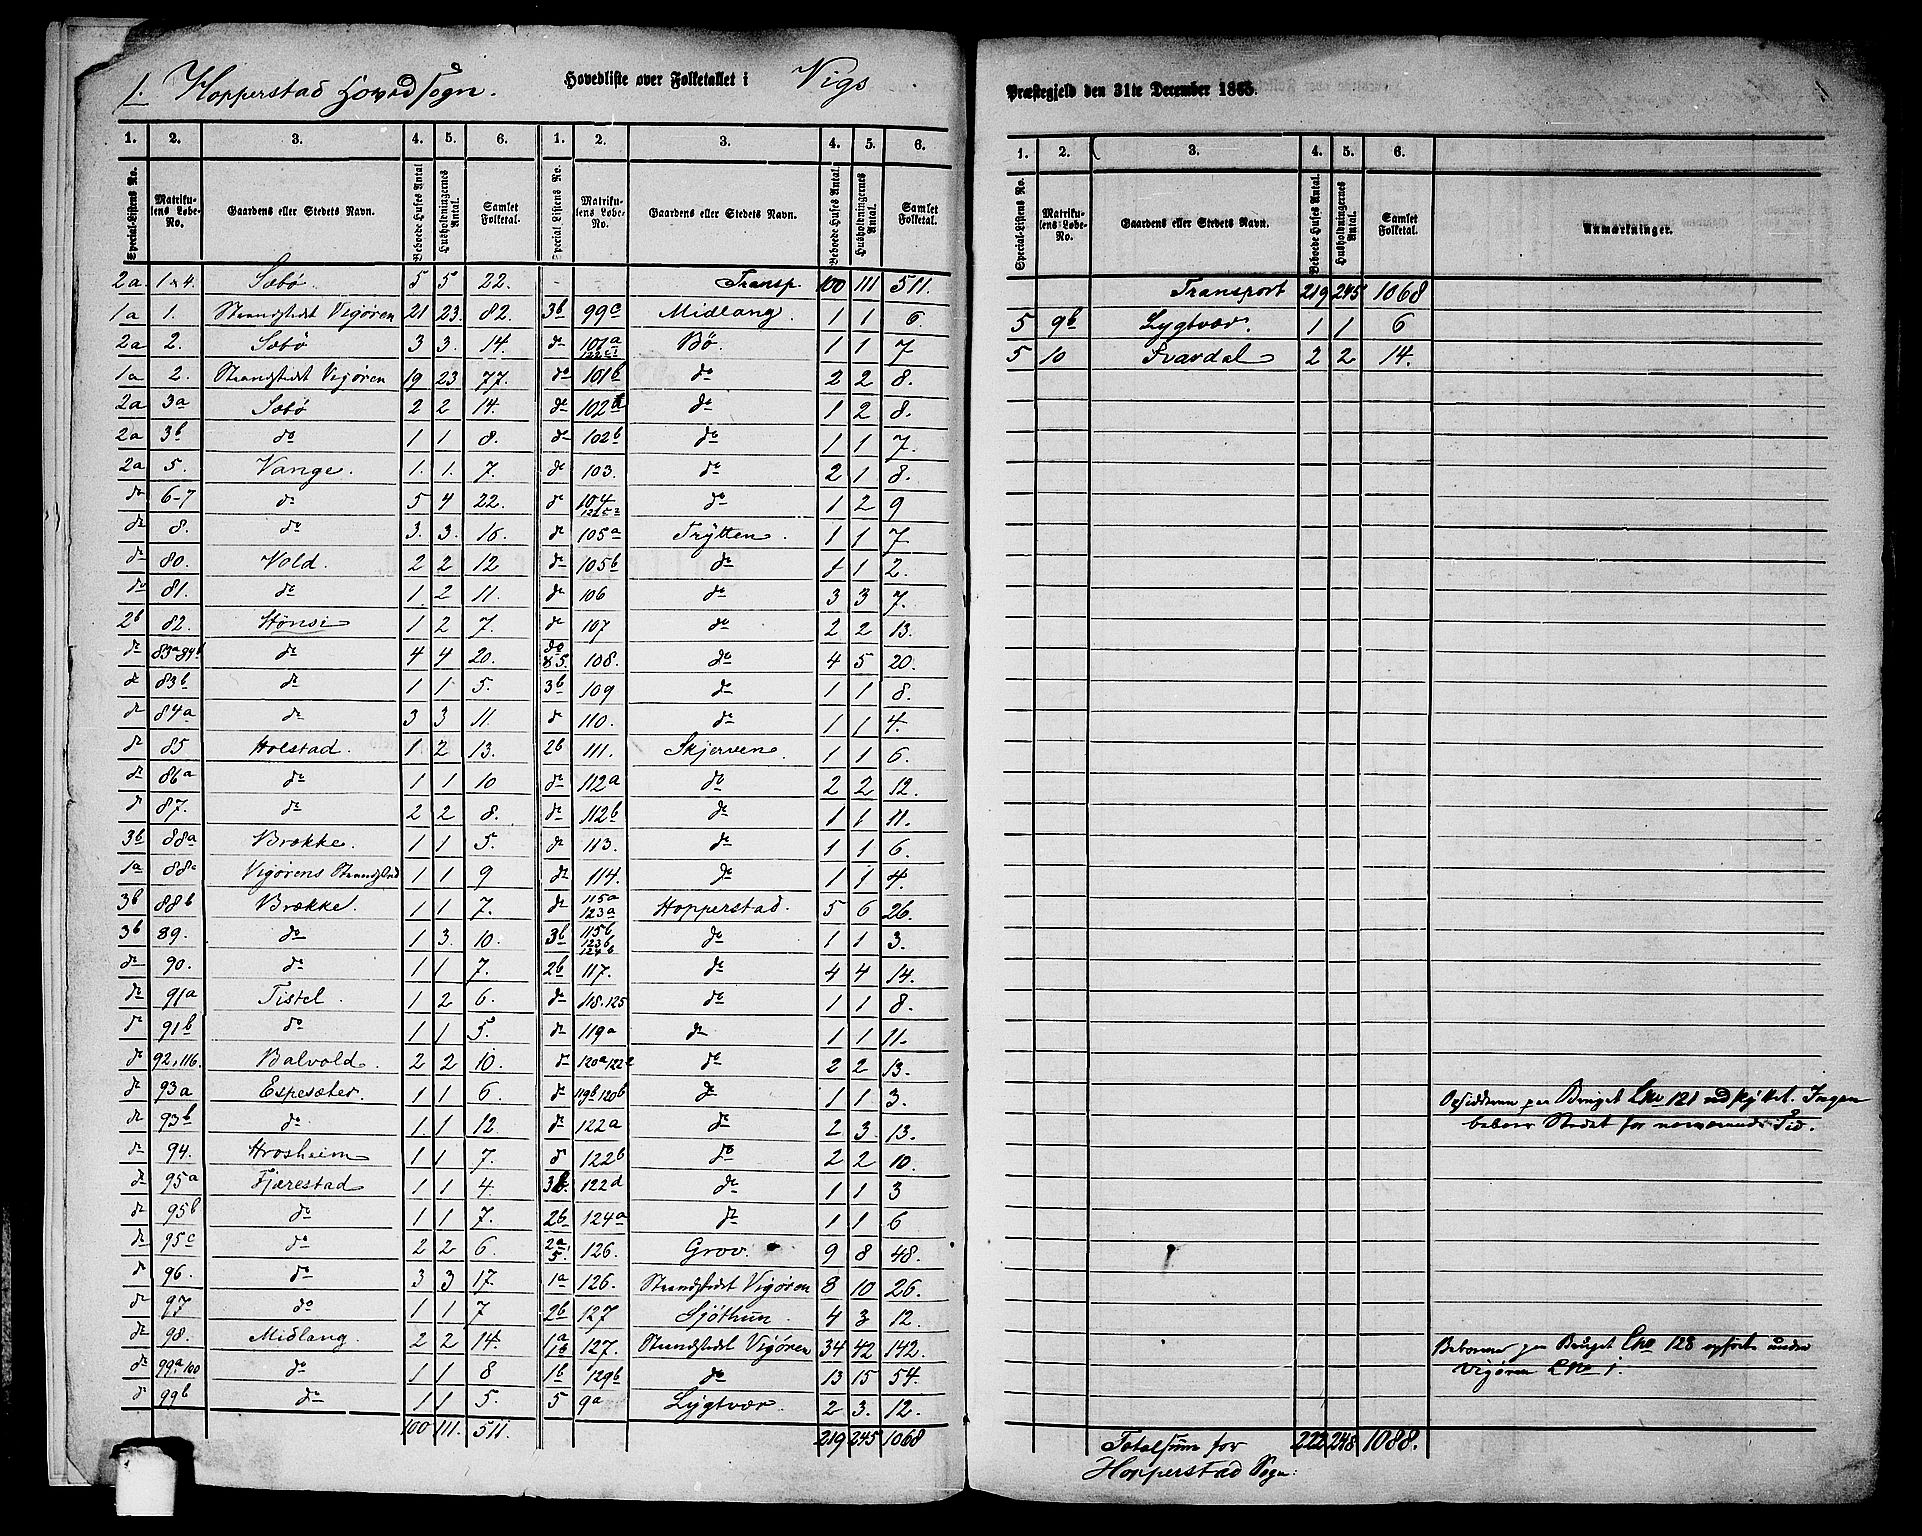 1. Hopperstad Hovedsogn. Hovedliste over Folketallet i Vigs Præstegjeld den 31te December 1865.
1. 2. 3. 4. 5. 6. 1. 2. 3. 4. 5. 6.
Special-Listens No. Matrikulens Løbe-No. Gaardens eller Stedets Navn. Beboede Huses Antal Husholdningernes Antal. Samlet Folketal. Special-Listens No. Matrikulens Løbe-No. Gaardens eller Stedets Navn. Beboede Huses Antal. Husholdningernes Antal. Samlet Folketal.
2a 1 & 4. Sæbø. 5 5 22.
1a 1. Strandstedet Vigøren 21 23. 82.
2a 2. Sæbø 3 3. 14.
1a 2. Strandstedet Vigøren 19 23 77.
2a 3a Sæbø 2 2 14.
2a 3b do 1 1 8.
2a 5. Vange. 1. 1. 7.
do 6-7 do 5 4 22.
do 8. do 3. 3. 16.
do 80. Vold. 2 2 12
do 81. do 1. 2 11.
2b 82. Hønsi 1 2 7.
do 83a 84b do 4 4 20.
do 83b do 1 1 5.
do 84a do 3 3 11.
do 85 Holstad. 1 2 13.
do 86a do 1 1 10
do 87. do 2 2 8.
3b 88a Brække. 1 1 5.
1a 88c Vigørens Strandsted 1 1 9
3b 88b Brække. 1 1 7.
3b 89. do 1 3. 10.
do 90. do 1 1 7.
do 91a Tistel. 1 2 6.
do 91b do 1 1 5.
do 92, 116. Balvold. 2 2 10.
do 93a Espesæter. 1 1 6
do 93b do 1 1 12.
do 94. Hrosheim 1 1 7.
do 95a Fjærestad 1 1 4.
do 95b do 1 1 7.
do 95c do 2 2 6.
do 96. do 3 3 17.
do 97 do 1 1 7
do 98. Midlang. 2 2 14.
do 99a 100 do 1 1 8
do 99b do 1 1 5.
100 111. 511.
Transp. 100 111 511.
3b 99c Midlang. 1 1 6.
do 101a 122c1 Bø. 1 1 7
do 101b do 2 2 8.
do 102a do 1 2 8.
do 102b do 1 1 7.
do 103. do 2 1 8.
do 104 122c2 do 1 2 9
do 105a Trytten. 1 1 7
do 105b do 1 1 2.
do 106 do 3 3 7.
do 107 do 2 2 13.
do 85. 108. do 4 5 20.
3b 109 do 1 1 8.
do 110. do 1 1 4.
2b 111. Skjerven. 1 1 6
do 112a do 2 2 12.
do 112b do 1 1 11.
do 113. do 1 1 6.
do 114. do 1 1 4.
do 115a 123a Hopperstad. 5 6 26.
3b 115b 123b 124b do 1 1 3.
2b 117. do 4 4 14.
do 118. 125 do 1 1 8.
do 119a do 1 1 11.
do 120a 122c do 2 2 13.
do 119b 120b do 1 1 3.
do 122a do 2 3. 13.
do 122b do 2 2 10.
3b. 122d do 1 1 3
2b 124a do 1 1 6
2a 5. 126. Grov. 9 8 48.
1a 126. Strandstedet Vigøren 8 10 26.
2b 127 Sjøthun. 4 3 12.
1a 1b 127. Strandstedet Vigøren 34 42 142.
1b 129b do 13 15 54.
5 9a Lygtvær 2 3. 12.
219 245 1068
1. 2. 3. 4. 5. 6.
Special-Listens No. Matrikulens Løbe-No. Gaardens eller Stedets Navn. Beboede Huses Antal. Husholdningernes Antal. Samlet Folketal. Anmærkninger.
Transport 219 245 1068
5 9b Lygtvær. 1 1 6
5 10 Svardal 2 2 14.
Opsidderne paa Bruget Lno 121 udflyttet. Ingen
beboer Stedet for nærværende Tid.
Beboerne paa Bruget Lno 128 opført under
Vigøren Lno 1.
Totalsum for 222 248 1088.
Hopperstad Sogn: